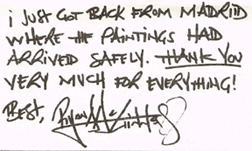 I JUST GOT BACK FROM MADRID
WHERE THE PAINTINGS HAD
ARRIVED SAFELY. THANK YOU
VERY MUCH FOR EVERYTHING!
BEST, Ryan